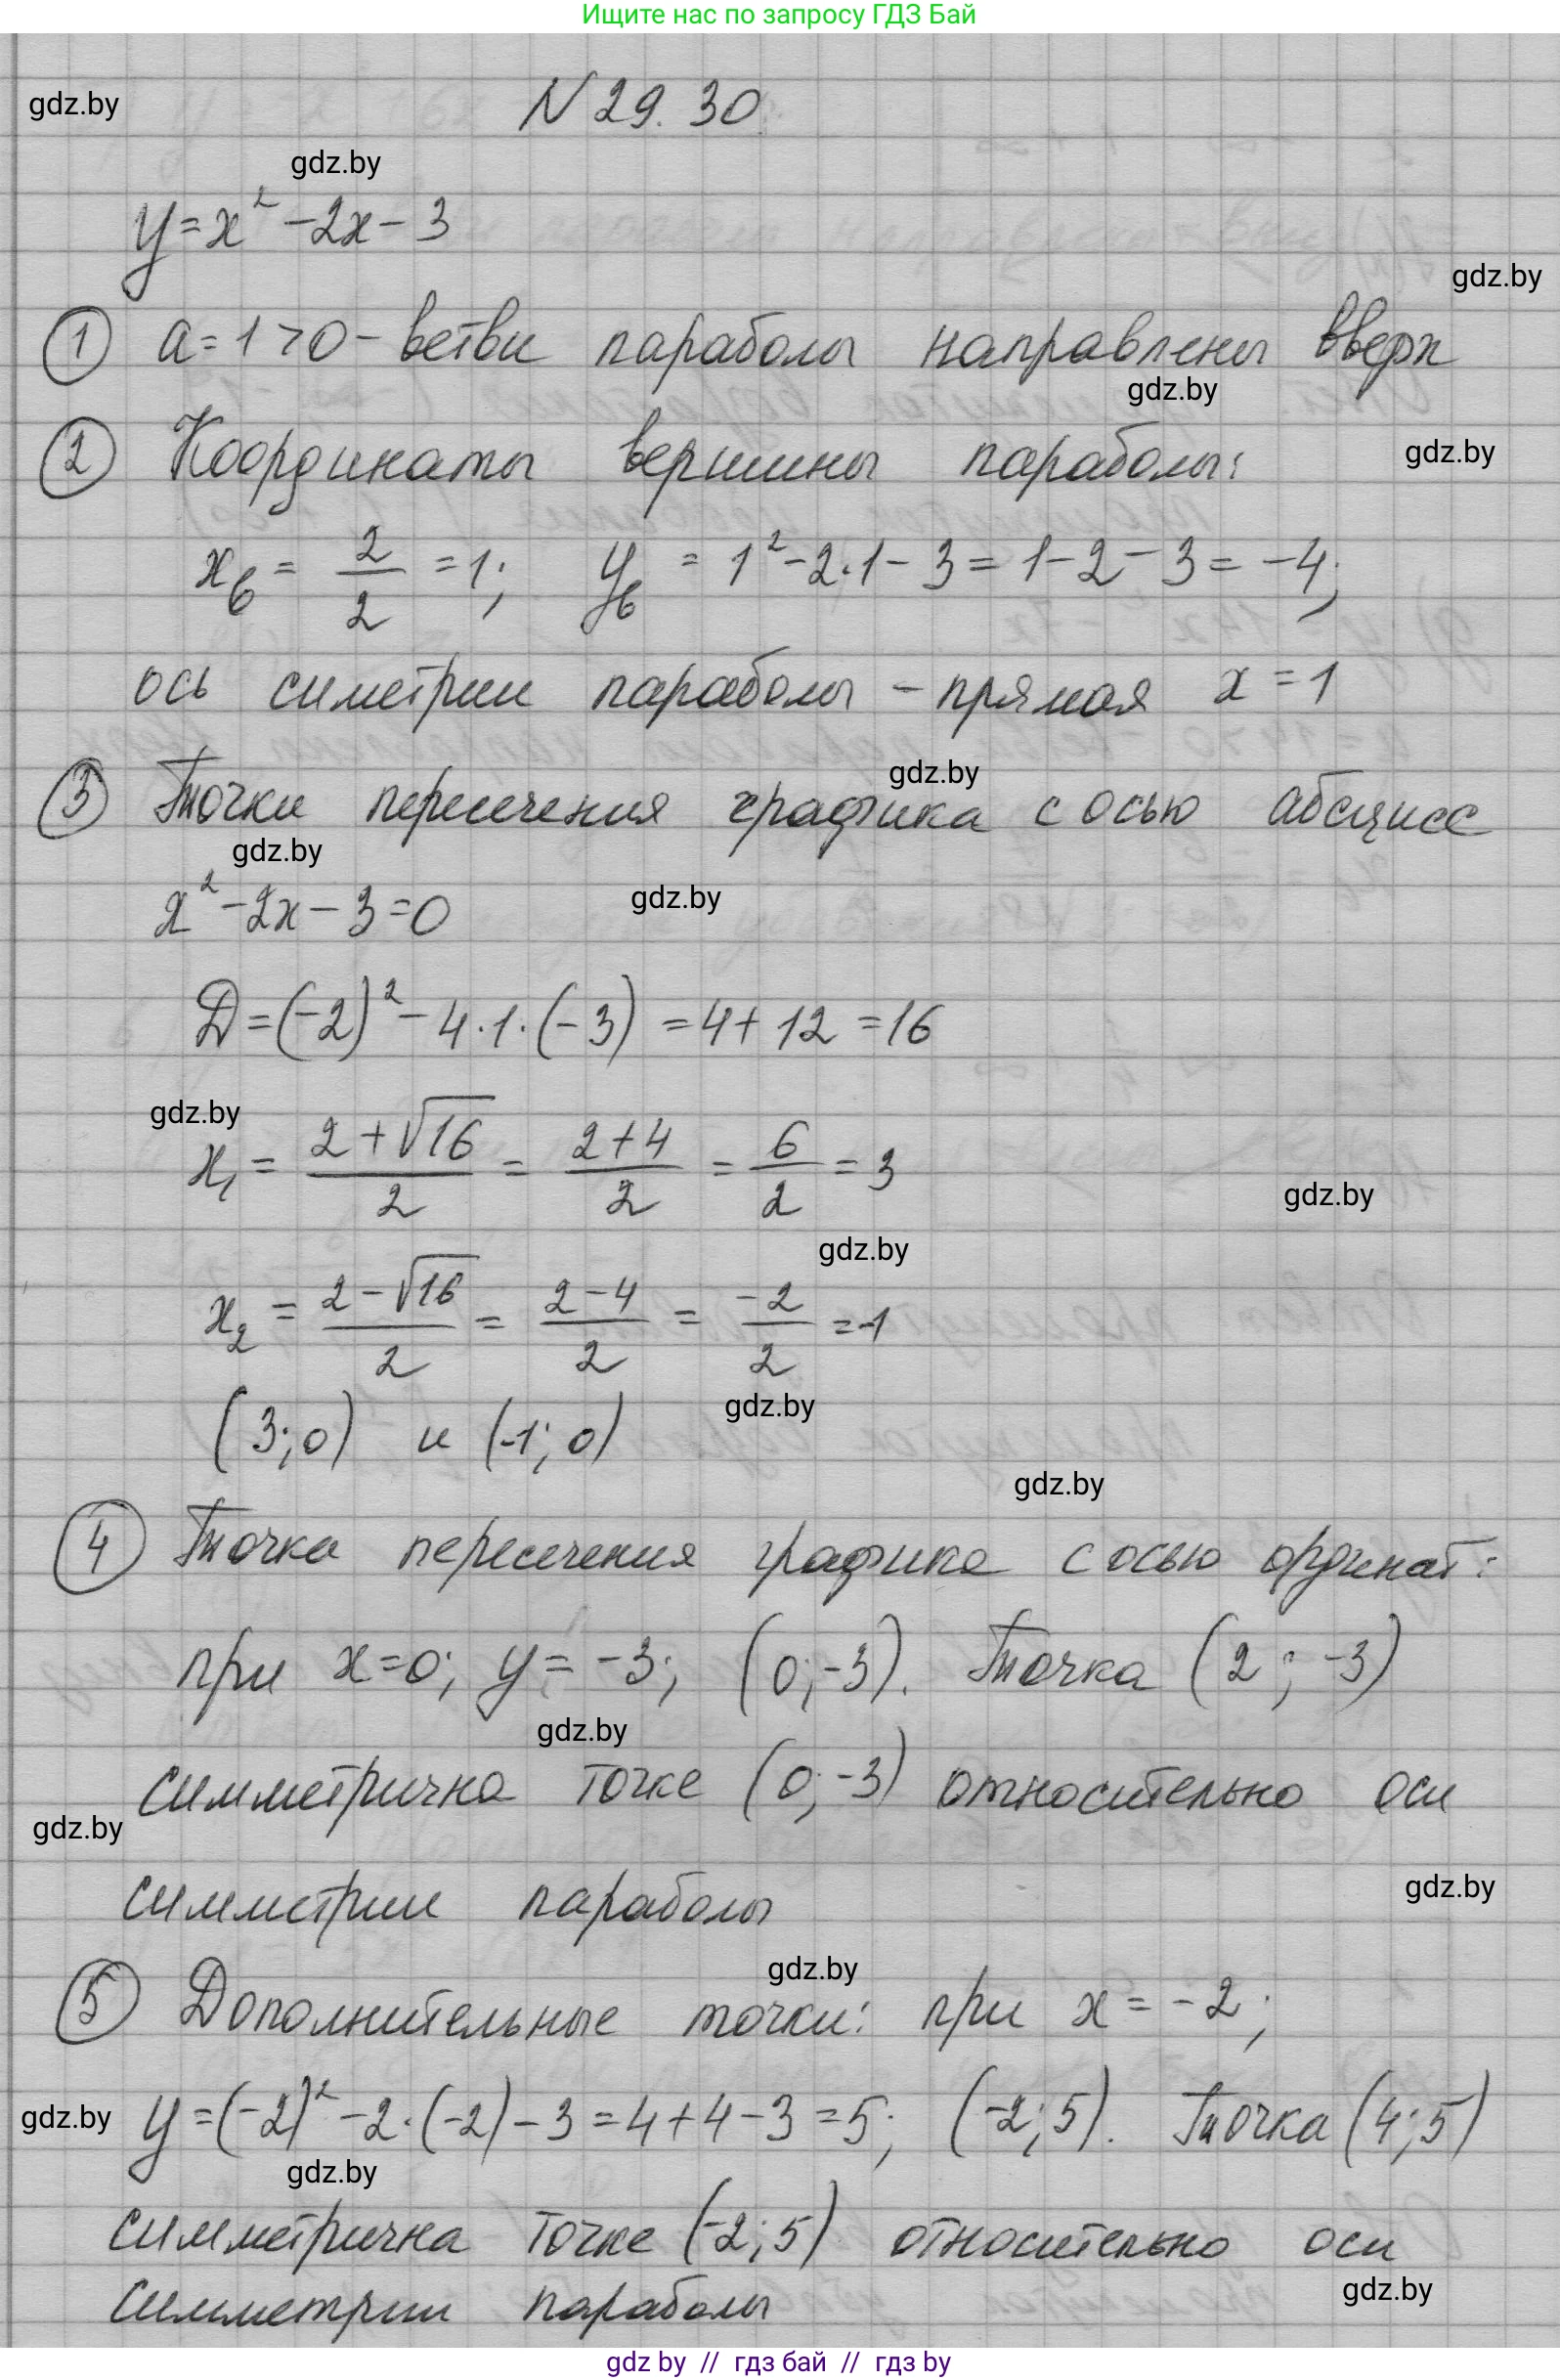 Ищите нас по запросу ГДЗ Бай
N 29. 30
gdz.by
gdz.by
y = x² - 2x - 3
gdz.by
1 a = 1 > 0 - ветви параболы направлены вверх
gdz.by
2 Координаты вершины параболы:
gdz.by
x_в = 2/2 = 1; y_в = 1² - 2·1 - 3 = 1 - 2 - 3 = -4;
ось симетрии параболы - прямая x = 1
gdz.by
3 Точки пересечения графика с осью абсцисс
gdz.by
x² - 2x - 3 = 0
gdz.by
D = (-2)² - 4·1·(-3) = 4 + 12 = 16
gdz.by
x₁ = (2 + √16)/2 = (2+4)/2 = 6/2 = 3
gdz.by
gdz.by
x₂ = (2 - √16)/2 = (2-4)/2 = -2/2 = -1
gdz.by
(3; 0) и (-1; 0)
gdz.by
4 Точка пересечения графика с осью ординат:
при x = 0; y = -3; (0; -3). Точка (2; -3)
gdz.by
симметрична точке (0; -3) относительно оси
gdz.by
gdz.by
симметрии параболы
gdz.by
5 Дополнительные точки: при x = -2;
gdz.by
y = (-2)² - 2·(-2) - 3 = 4 + 4 - 3 = 5; (-2; 5). Точка (4; 5)
gdz.by
симметрична точке (-2; 5) относительно оси
gdz.by
симметрии параболы
gdz by // гдз бай // гдз by